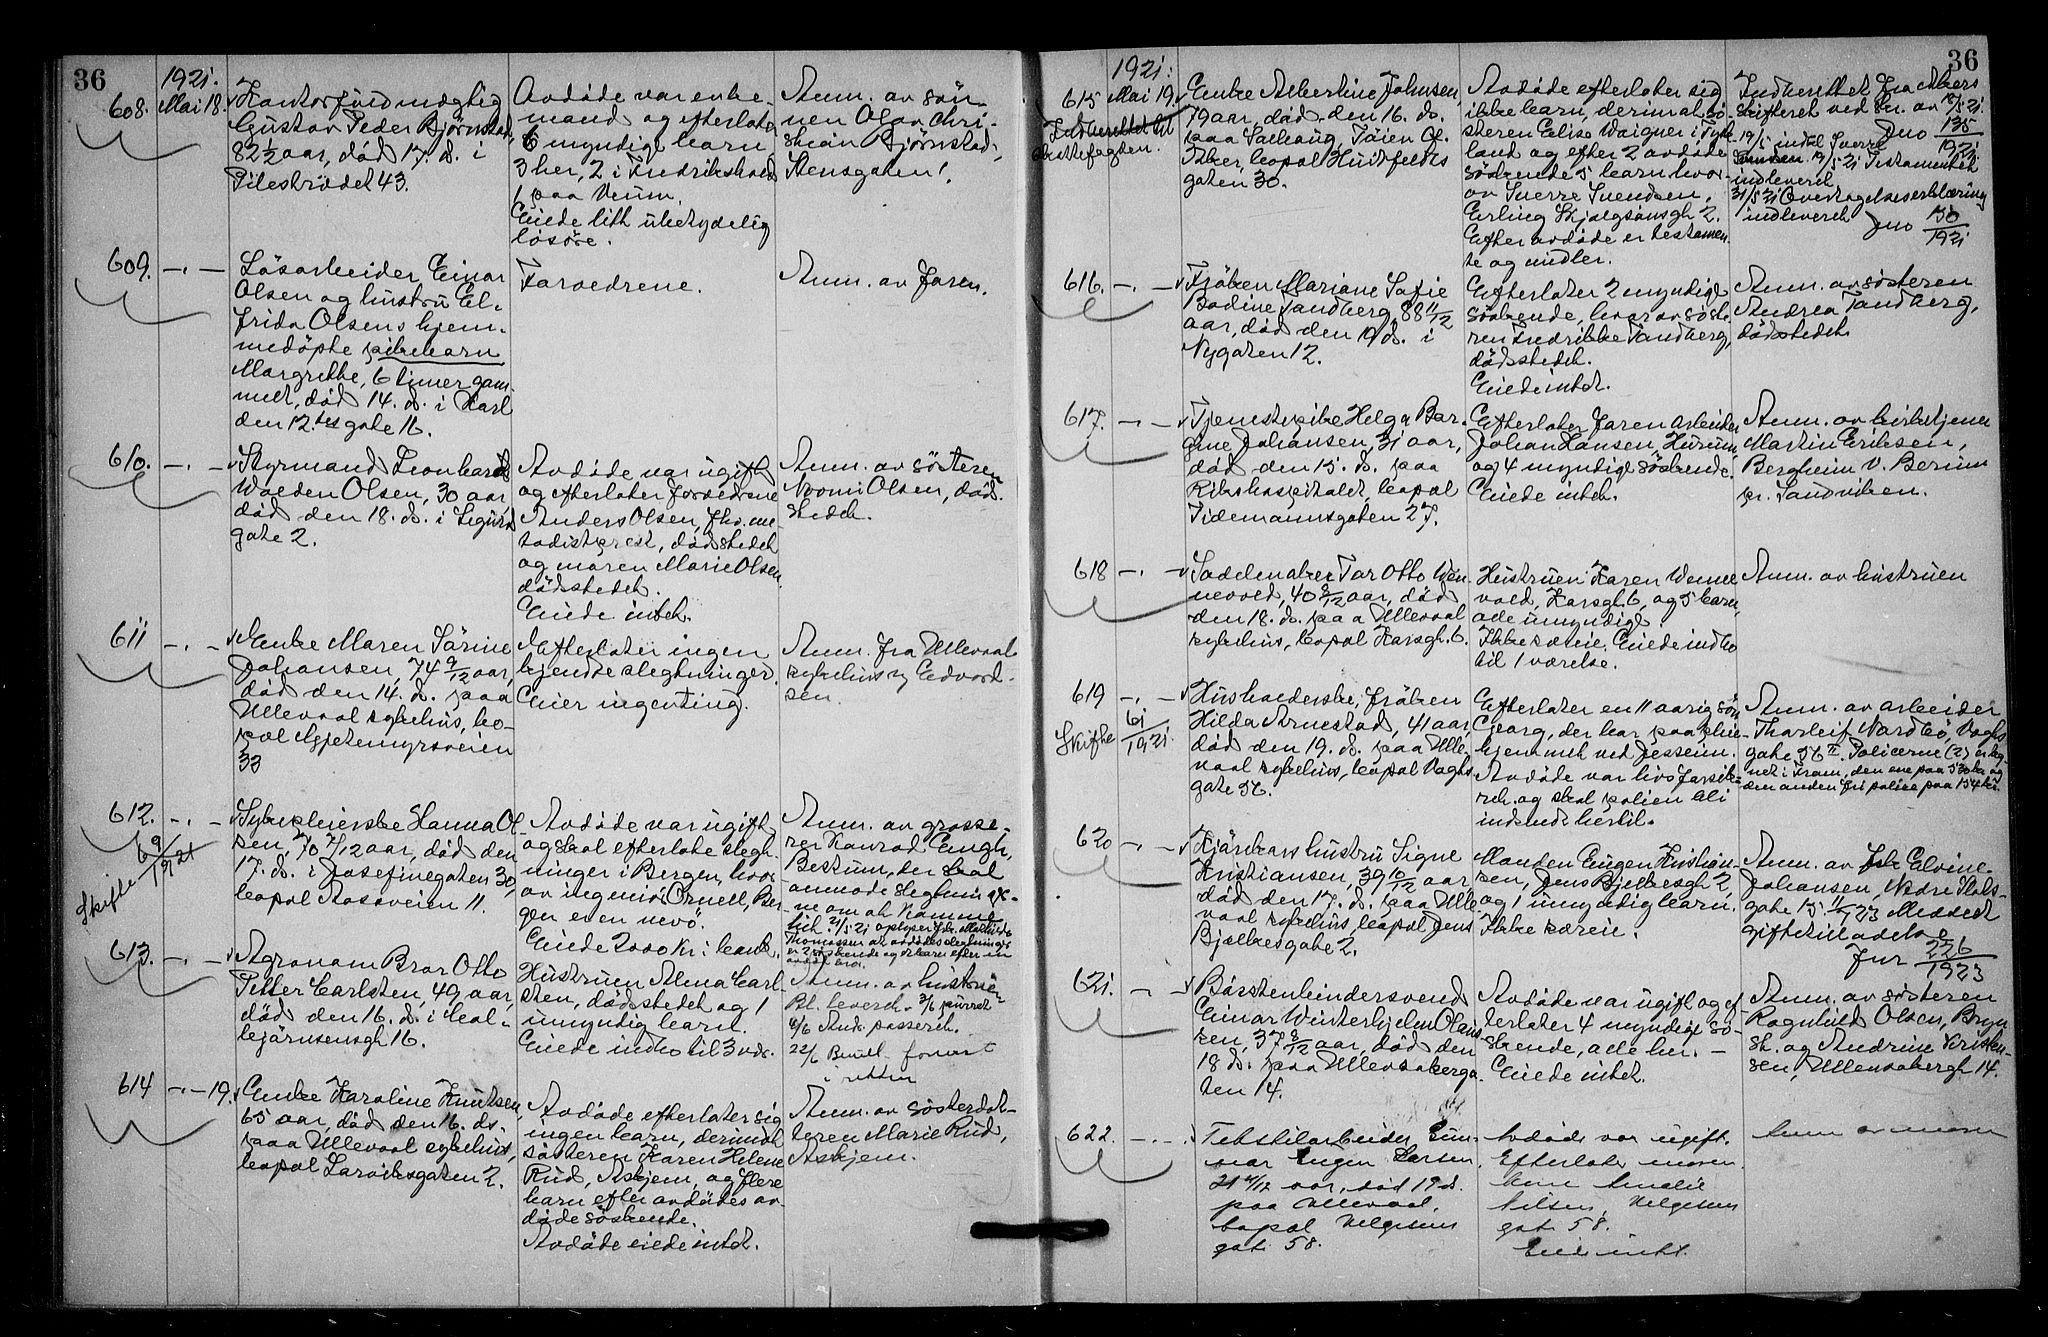 36
1921.
608. Mai 18. Kontorfuldmægtig
Gustav Peder Bjørnstad,
82½ aar, død 17. d. i
Pilestrædet 43.
Avdøde var enke-
mand og efterlater
6 myndige barn
3 her, 2 i Fredrikshald
1 paa Veum.
Eiede litt ubetydelig
løsøre.
Anm. av søn
nen Olav Chri-
stian Bjørnstad,
Stensgaten 1.
609. —.— Løsarbeider Einar
Olsen og hustru El-
frida Olsens hjem-
medøpte pikebarn
Margrethe, 6 timer gam-
melt, død 14. d. i Karl
den 12.tes gate 16.
Forældrene.
Anm. av faren.
610. —.— Styrmand Leonhard
Walden Olsen, 30 aar
død den 18. d. i Sigurds
gate 2.
Avdøde var ugift
og efterlater forældrene
Anders Olsen, fhv. me-
todistprest, dødsstedet
og moren Marie Olsen
dødsstedet.
Eiede intet.
Anm. av søsteren
Noomi Olsen, død-
stedet.
611 —.— Enke Maren Sørine
Johansen, 74 9/12 aar,
død den 14. d. paa
Ullevaal sykehus, bo-
pæl Gjetemyrsveien
33
Efterlater ingen
kjendte slegtninger.
Eier ingenting.
Anm. fra Ullevaal
sykehus v Edvard-
sen
612. —.— Sykepleierske Hanna Ol-
sen, 70 7/12 aar, død den
17. d. i Josefinegaten 30,
bopæl Aasaveien 11.
Skifte 69/1921
Avdøde var ugift
og skal efterlate slegt-
ninger i Bergen, hvor-
av ingeniør Ornell, Ber-
gen er en nevø.
Eiede 2000 kr. i bank.
Anm. av grosse-
rer Konrad Engh,
Bestum, der skal
anmode slegtninge-
ne om at komme
hit. 21/5 21 oplyser frk. Mathilde
Thomassen at avdødes slegtninger
er 2 søskende og barn efter en
avdød bror.
613. —.— Agronom Bror Otto
Petter Carlsten, 49 aar,
død den 16. d. i Cal-
lejørnsensgt 16.
Hustruen Alma Carl-
sten, dødsstedet og 1
umyndig barn.
Eiede indbo til 3 vær.
Anm. av hustruen
Bl. levert. 3/6 purret
6/6 Ands. passert.
22/6 Bevill. forevist
i retten
614 —.—19. Enke Karoline Knutsen
65 aar, død den 16. ds.
paa Ullevaal sykehus,
bopæl Larviksgaten 2.
Avdøde efterlater sig
ingen barn, derimot
søsteren Karen Helene
Rud, Askjem, og flere
barn efter avdødes av-
døde søskende.
Avdøde eiede intet.
Anm. av søsterdat-
teren Marie Rud,
Askjem.
36
1921.
615 Mai 19. Enke Albertine Johnsen,
79 aar, død den 16. ds.
paa Salhaug, Tøien
bopæl Huitfeldts
gaten 30.
Indberettet til
skiftefogden.
Avdøde efterlater sig
ikke barn, derimot sø-
steren Elise Waigner i Tysk-
land og efter 2 avdøde
søskende 5 barn hvor-
av Sverre Svendsen,
Erling Skjalgsønsgt 2.
Efter avdøde er testamen-
te og midler.
Indberettet fra Akers
skifteret ved skr. av 18/5 21
Jno 135/1921
19/5 indk Sverre
19/5 21 Testamentet
indlevert
31/5 21 Overtagelseserklæring
indlevert Jno 150/1921
616. —.— Frøken Mariane Sofie
Bodine Tandberg, 88 11/12
aar, død den 19 ds. i
Nygaten 12.
Efterlater 2 myndige
søskende, hvorav søste-
ren Fredrikke Tandberg,
dødsstedet.
Eiede intet.
Anm. av søsteren
Andrea Tandberg,
dødsstedet.
617. —.— Tjenestepike Helga Bor-
gine Johansen, 31 aar,
død den 15. ds. paa
Rikshospitalet, bopæl
Tidemannsgaten 27.
Efterlater faren arbeider
Johan Hansen, Hurum,
og 4 myndige søskende.
Eiede intet.
Anm. av kirketjener
Martin Eriksen,
Bergheim V. Bærum
pr. Sandviken.
618 —.— Sadelmaker Tor Otto Wen-
nevold, 40 2/12 aar, død
den 18. ds. paa Ullevaal
sykehus, bopæl Korsgt. 6.
Hustruen Karen Wenne-
vold, Korsgt. 6, og 5 barn,
alle umyndige.
Ikke særeie. Eiede indbo
til 1 værelse.
Anm. av hustruen
619 —.— Husholderske, frøken
Hilda Arnestad, 41 aar,
død den 19. ds. paa Ulle-
vaal sykehus, bopæl Vogts
gate 56.
Skifte 61/1921
Efterlater en 11 aarig søn
Georg, der bor paa pleie-
hjemmet ved Jessheim.
Avdøde var livsforsik-
ret. og skal polisen bli
indsendt hertil.
Anm. av arbeider
Thorleif Nordbø, Vogts
gate 56 II. Policerne (2) er teg-
net i Fram, den ene paa 530 kr og
den anden fri police paa 154 kr.
620 —.— Kjørekars hustru Signe
Kristiansen, 39 10/12 aar
død den 17. ds. paa Ulle-
vaal sykehus, bopæl Jens
Bjelkesgate 2.
Manden Eugen Kristian-
sen, Jens Bjelkesgt 2,
og 1 umyndig barn.
Ikke særeie.
Anm. av frk Elvine
Johansen, Nedre Slots-
gate 15 11/1 23 Meddelt
giftetilladelse
Jnr 226/1923
621. — — Børstenbindersvend
Einar Winterhjelm Olaus-
sen, 37 3/12 aar, død den
18 ds. paa Ullevaalsga-
ten 14.
Avdøde var ugift og ef-
terlater 4 myndige sø-
skende, alle her. —
Eiede intet.
Anm. av søsteren
Ragnhild Olsen, Bryn
st. og Andrine Kristen-
sen, Ullevaalsgt 14.
622. —.— Tekstilarbeider Gun-
nar Eugen Larsen,
21 4/12 aar, død 19 ds.
paa Ullevaal,
bopæl Helgesens
gate 58.
Avdøde var ugift.
Efterlater moren
Amalie
Nilsen, Helgesens
gate 58.
Eiet intet.
Anm av moren